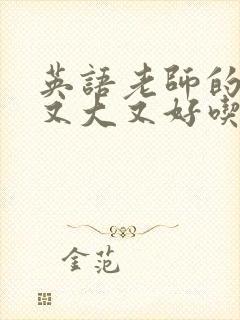 英語老師的
又大又好喫
金范